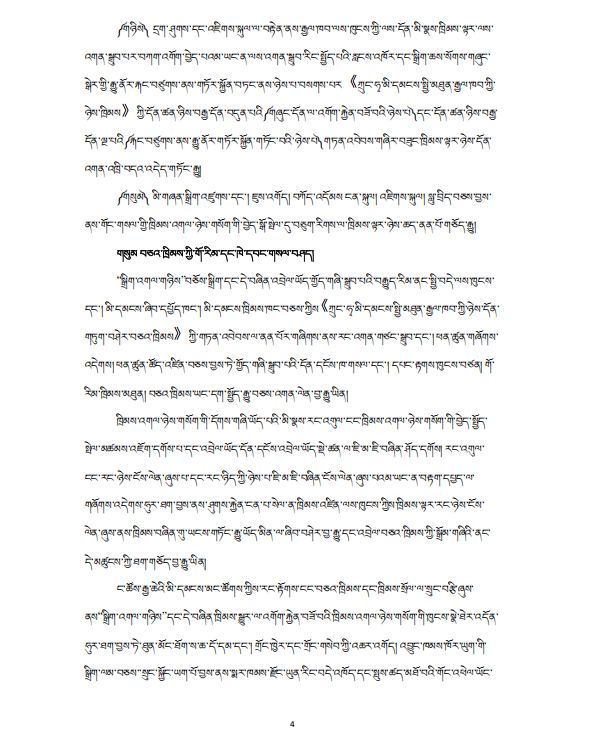 ༼གཉིས༽ དྲག་ཤུགས་དང་འཇིགས་སྐུལ་ལ་བརྟེན་ནས་རྒྱལ་ཁབ་ལས་ཁུངས་ཀྱི་ལས་དོན་མི་སྣས་ཁྲིམས་ལྟར་ལས་
འགན་སྒྲུབ་པར་བཀག་འགོག་བྱེད་པའམ་ཡང་ན་ལས་འགན་སྒྲུབ་རིང་སྤྱོད་པའི་རླངས་འཁོར་དང་སྒྲིག་ཆས་སོགས་གཞུང་
སྒེར་གྱི་རྒྱུ་ནོར་རྐང་བཙུགས་ནས་གཏོར་སྐྱོན་བཏང་ནས་ཉེས་པ་བསགས་པར 《ཀྲུང་ཧྭ་མི་དམངས་སྤྱི་མཐུན་རྒྱལ་ཁབ་ཀྱི་
ཉེས་ཁྲིམས》 ཀྱི་དོན་ཚན་ཉིས་བརྒྱ་དོན་བདུན་པའི་༼གཞུང་དོན་ལ་འགོག་རྐྱེན་བཟོ་བའི་ཉེས་པ༽དང་དོན་ཚན་ཉིས་བརྒྱ་
དོན་ལྔ་པའི་༼རྐང་བཙུགས་ནས་རྒྱུ་ནོར་གཏོར་སྐྱོན་གཏོང་བའི་ཉེས་པ༽གཏན་འབེབས་གཞིར་བཟུང་ཁྲིམས་ལྟར་ཉེས་དོན་
འགན་འཁྲི་བདའ་འདེད་གཏོང་རྒྱུ།
༼གསུམ༽ མི་གཞན་སྒྲིག་འཛུགས་དང་། ཇུས་འགོད། བཀོད་འདོམས། ངན་སྐུལ། འཇིགས་སྐུལ། སླུ་བྲིད་བཅས་བྱས་
ནས་གོང་གསལ་གྱི་ཁྲིམས་འགལ་ཉེས་གསོག་གི་བྱེད་སྒོ་སྤེལ་དུ་བཅུག་རིགས་ལ་ཁྲིམས་ལྟར་ཉེས་ཆད་ནན་པོ་གཅོད་རྒྱུ།
གསུམ བཅའ་ཁྲིམས་ཀྱི་གོ་རིམ་དང་ཁེ་དབང་གསལ་བཤད།
“སྒྲིག་འགལ་གཉིས”བཅོས་སྒྲིག་དང་དེ་བཞིན་འབྲེལ་ཡོད་གྱོད་གཞི་སྒྲུབ་པའི་བརྒྱུད་རིམ་ནང་སྤྱི་བདེ་ལས་ཁུངས་
དང་། མི་དམངས་ཞིབ་དཔྱོད་ཁང་། མི་དམངས་ཁྲིམས་ཁང་བཅས་ཀྱིས《ཀྲུང་ཧྭ་མི་དམངས་སྤྱི་མཐུན་རྒྱལ་ཁབ་ཀྱི་ཉེས་དོན་
གཏུག་བཤེར་བཅའ་ཁྲིམས》 ཀྱི་གཏན་འབེབས་ལ་ནན་པོར་གཞིགས་ནས་རང་འགན་གཙང་སྒྲུབ་དང་། ཕན་ཚུན་གཞོགས་
འདེགས། ཕན་ཚུན་ཚོད་འཛིན་བཅས་བྱས་ཏེ་གྱོད་གཞི་སྒྲུབ་པའི་དོན་དངོས་ཁ་གསལ་དང་། དཔང་རྟགས་ཁུངས་བཙན། གོ་
རིམ་ཁྲིམས་མཐུན། བཅའ་ཁྲིམས་ཡང་དག་སྤྱོད་རྒྱུ་བཅས་འགན་ལེན་བྱ་རྒྱུ་ཡིན།
ཁྲིམས་འགལ་ཉེས་གསོག་གི་དོགས་གཞི་ཡོད་པའི་མི་སྣས་རང་འགུལ་ངང་ཁྲིམས་འགལ་ཉེས་གསོག་གི་བྱེད་སྤྱོད་
སྤེལ་མཚམས་འཇོག་དགོས་པ་དང་འབྲེལ་ཡོད་དོན་དངོས་འབྲེལ་ཡོད་སྡེ་ཚན་ལ་ཇི་མ་ཇི་བཞིན་ཤོད་དགོས། རང་འགུལ་
ངང་རང་ཉེས་ངོས་ལེན་ཞུས་པ་དང་རང་ཉིད་ཀྱི་ཉེས་པ་ཇི་མ་ཇི་བཞིན་ངོས་ལེན་ཞུས་པའམ་ཡང་ན་བརྟག་དཔྱད་ལ་
གཞོགས་འདེགས་ཧུར་ཐག་བྱས་ནས་ཤུགས་རྐྱེན་ངན་པ་སེལ་ན་ཁྲིམས་འཛིན་ལས་ཁུངས་ཀྱིས་ཁྲིམས་ལྟར་རང་ཉེས་ངོས་
ལེན་ཞུས་ནས་ཁྲིམས་བཞིན་གུ་ཡངས་གཏོང་རྒྱུ་ཡོད་མིན་ལ་ཞིབ་བཤེར་བྱ་རྒྱུ་དང་འབྲེལ་བཅའ་ཁྲིམས་ཀྱི་སྒྲོམ་གཞིའི་ནང་
དེ་མཚུངས་ཀྱི་ཐག་གཅོད་བྱ་རྒྱུ་ཡིན།
ང་ཚོས་རྒྱ་ཆེའི་མི་དམངས་མང་ཚོགས་ཀྱིས་རང་རྟོགས་ངང་བཅའ་ཁྲིམས་དང་ཁྲིམས་སྲོལ་ལ་སྲུང་བརྩི་ཞུས་
ནས“སྒྲིག་འགལ་གཉིས”དང་དེ་བཞིན་ཁྲིམས་སྒྱུར་ལ་འགོག་རྐྱེན་བཟོ་བའི་ཁྲིམས་འགལ་ཉེས་གསོག་གི་ཁུངས་སྣེ་ཐེར་འདོན་
ཧུར་ཐག་བྱས་ཏེ་ཐུན་མོང་ཐོག་ས་ཆ་དོ་དམ་དང་། གྲོང་ཁྱེར་དང་གྲོང་གསེབ་ཀྱི་འཆར་འགོད། འབྱུང་ཁམས་ཁོར་ཡུག་གི་
སྒྲིག་ལམ་བཅས་སྲུང་སྐྱོང་ཡག་པོ་བྱས་ནས་སྨར་ཁམས་རྫོང་ཡུན་རིང་བདེ་འཁོད་དང་སྤུས་ཚད་མཐོ་བའི་གོང་འཕེལ་ཡོང་
4